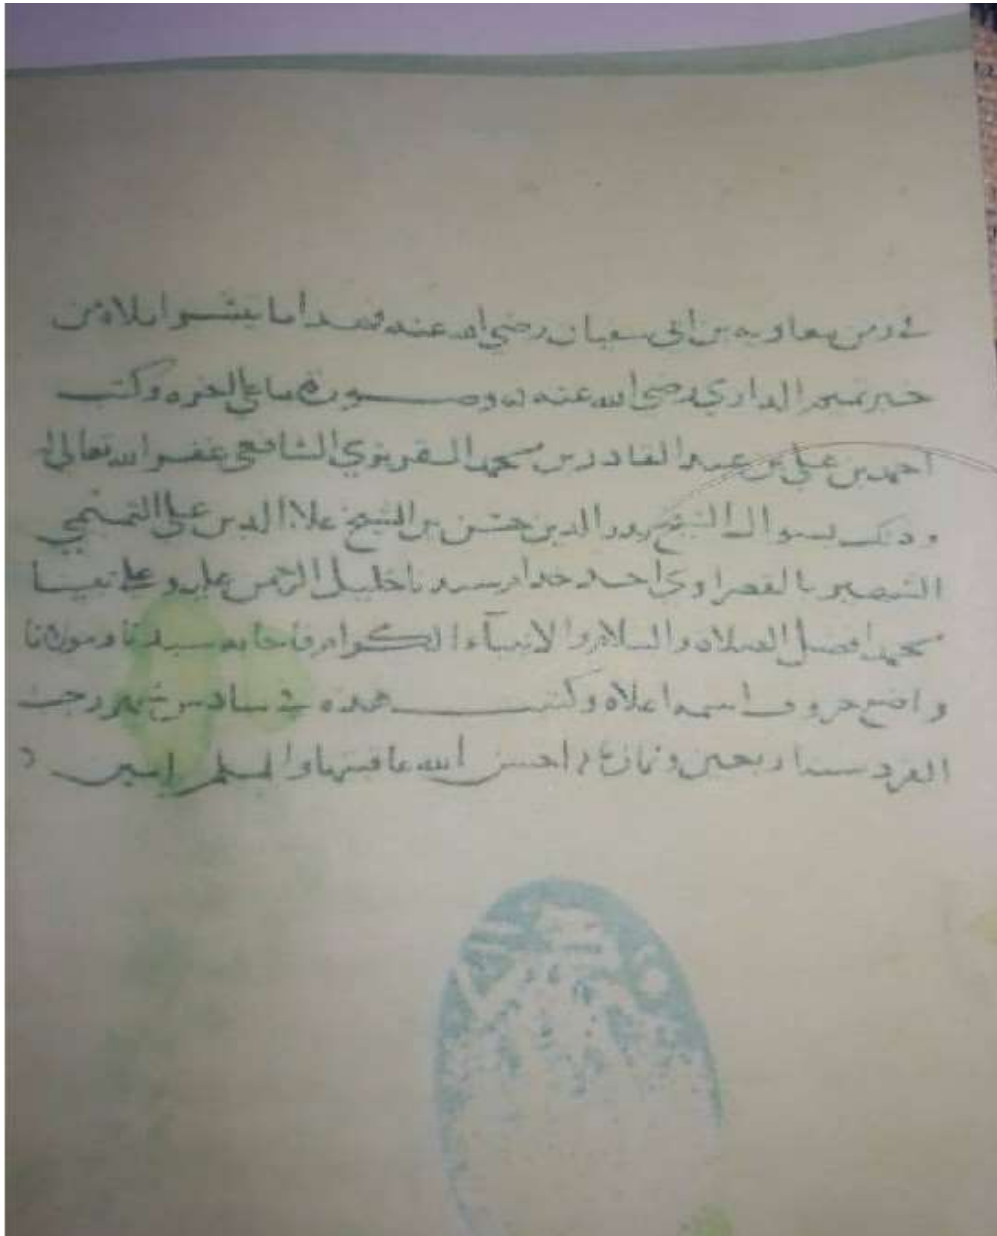 في زمن معاويه بن ابي سفيان رضي الله عنه فهذا ما تيسر املاه من
خبر تميم الداري رضي الله عنه وصورة ما علي الخره وكتب
احمد بن علي بن عبد القادر بن محمد المقريزي الشافعي غفر الله تعالى له
وذلك بسوال الشيخ الدين حسن بن الشيخ علاا الدين علي التميمي
الشهير بالقصراوي احد خدام سيدنا خليل الرحمن عليه وعلى نبينا
محمد افضل الصلاه والسلام والانبياء الكرام فاجابه سيدنا ومولانا
واضع حروف اسمه اعلاه وكتب هذه في سادس شهر رجب
الفرد سنة اربعين وثمان احسن الله عاقبتها والمسلمين امين